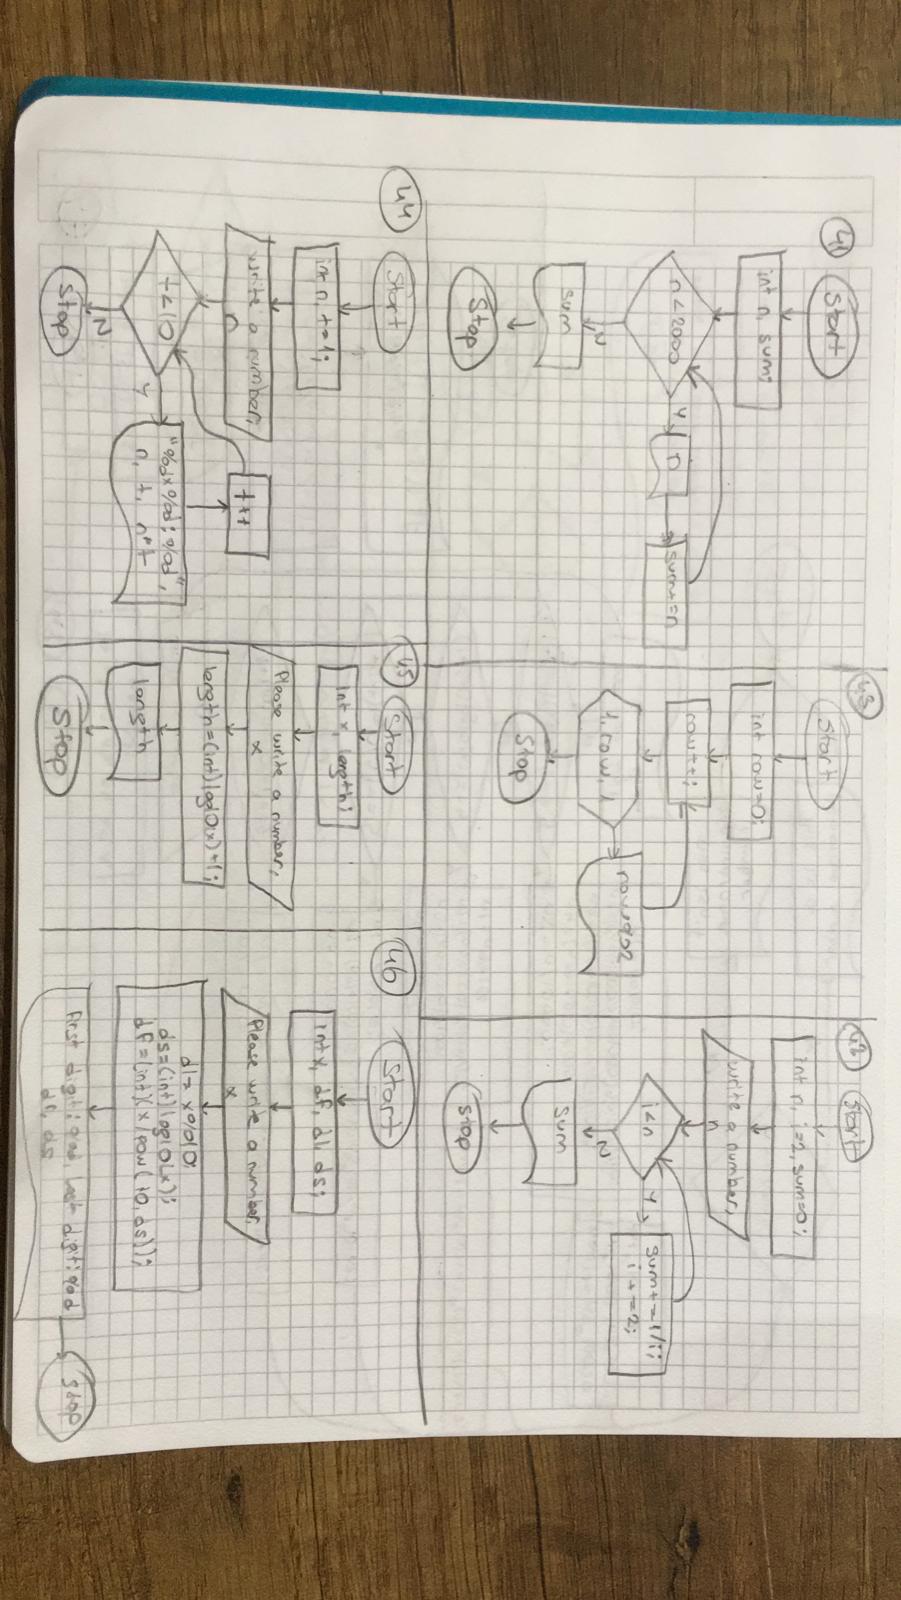 41
Start
int n, sum;
n<2000
Y
n
sum+=n
N
sum
Stop
43
Start
int row=0;
row++;
row%2
Stop
42
Start
int n, i=2, sum=0;
write a number,
n
i<n
Y
sum+=1/i;
i+=2;
N
sum
Stop
44
Start
int n, t=1;
write a number,
n
t<10
Y
"%dx%d:%d",
n, t, n*t
t++
N
Stop
45
Start
int x, length;
Please write a number,
x
length=(int)log10(x)+1;
length
Stop
46
Start
int x, df, dl, ds;
Please write a number,
x
dl=x%10
ds=(int)log10(x);
df=(int)(x/pow(10,ds));
First digit:%d, last digit:%d
Stop